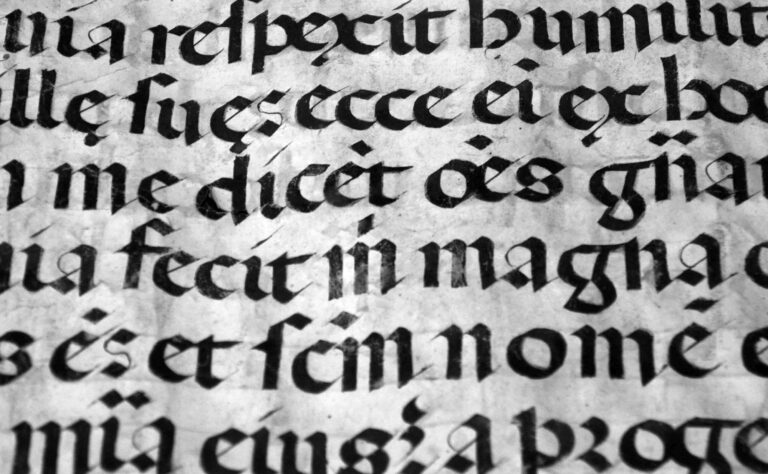 uia reſpexit humilit
illę ſuę: ecce eī ex hoc
me dicēt oēs gn̄a
uia fecit m̄ magna
s ēs et ſcm̄ nomē e
mīa eius a proge